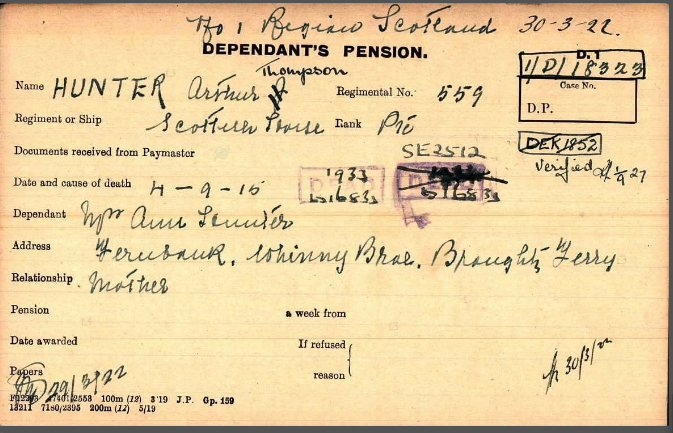 No 1 Region Scotland 30-3-22.
DEPENDANT'S PENSION.
D.1
11/D/18323
Case No.
D.P.
Thompson
Name HUNTER Arthur
Regimental No. 559
Regiment or Ship Scottish Horse Rank Pte
DEK1852
Verified 27
Documents received from Paymaster SE2512
Date and cause of death 4-9-15
1933
Dependant Mrs Ann Hunter
Address Fernbank, Whinny Brae, Broughty Ferry
Relationship Mother
Pension a week from
Date awarded If refused
reason
30/3/22
Papers
29/3/22
17401/2553 100m (12) 3'19 J.P. Gp. 159
13211 7180/2395 200m (12) 5/19